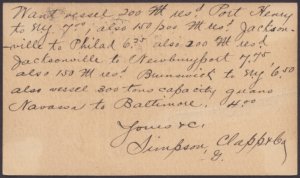 Want vessel 200 M res. Port Henry
to NY 7.00, also 150 M res. Jackson-
ville to Philad 6.25 also 200 M res.
Jacksonville to Newburyport 7.75
also 150 M res. Brunswick to NY 6.50
also vessel 300 tons capacity guano
Navassa to Baltimore. 4.00
Yours &c.
Simpson, Clapp & Co
G.